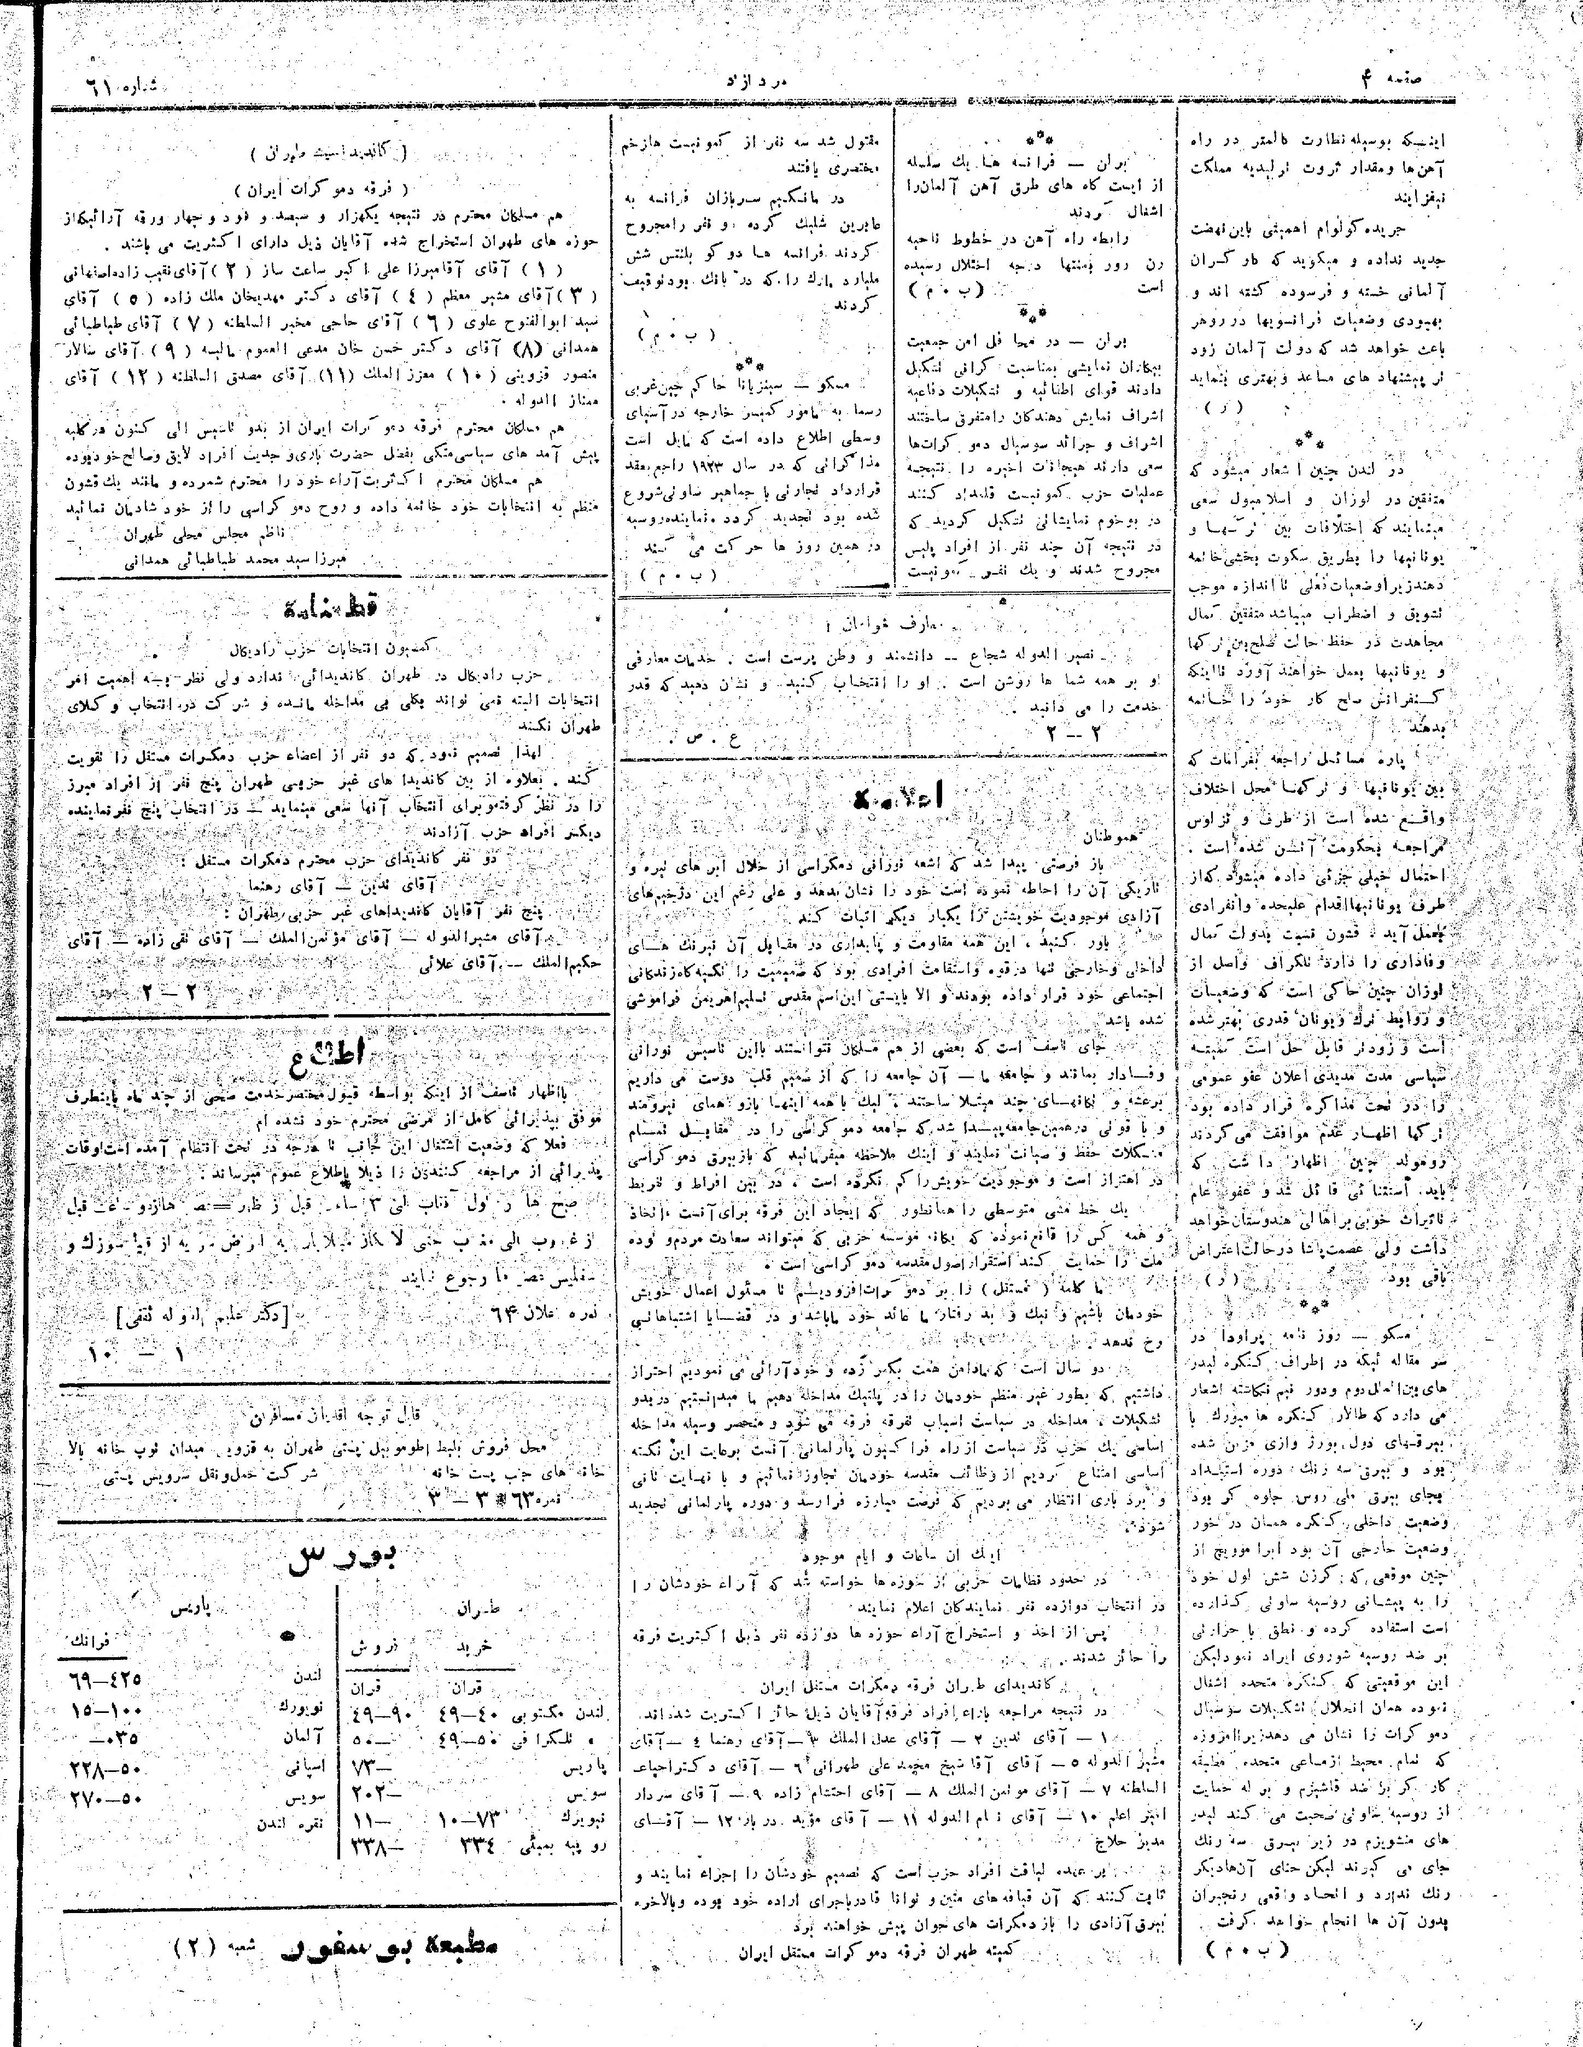 صفحه ۴
مرد آزاد
شماره ۶۱
اینکه بوسیله نظارت کاملتر در راه
آهن‌ها و مقدار ثروت تولیدیه مملکت
بیفزایند
جریده کولوام اهمیتی باین نهضت
جدید نداده و میگوید که کارگران
آلمانی خسته و فرسوده گشته اند و
بهبودی وضعیات فرانسویها در روهر
باعث خواهد شد که دولت آلمان زود
تر پیشنهاد های مساعد و بهتری بنماید
( ر )
در لندن چنین اشعار میشود که
متفقین در لوزان و اسلامبول سعی
مینمایند که اختلافات بین ترکها و
یونانیها را بطریق سکوت بخشی خاتمه
دهند زیرا وضعیات فعلی تا اندازه موجب
تشویق و اضطراب میباشد متفقین کمال
مجاهدت در حفظ حالت صلح بین ترکها
و یونانیها بعمل خواهند آورد تا اینکه
کنفرانس صلح کار خود را خاتمه
بدهند
پاره مسائل راجعه بغرامات که
بین یونانیها و ترکها محل اختلاف
واقع شده است از طرف ونزلوس
مراجعه بحکومت آتن شده است .
احتمال خیلی جزئی داده میشود که از
طرف یونانیها اقدام علیحده و انفرادی
بعمل آید . قشون نسبت بدولت کمال
وفاداری را دارد تلگراف واصل از
لوزان چنین حاکی است که وضعیات
و روابط ترك و یونان قدری بهتر شده
است و زودتر قابل حل است کمیته
سیاسی مدت مدیدی اعلان عفو عمومی
را در تحت مذاکره قرار داده بود
ترکها اظهار عدم موافقت می‌کردند
رومبولد چنین اظهار داشت که
باید استثنائی قائل شد و عفو عام
تاثیرات خوبی بر اهالی هندوستان خواهد
داشت ولی عصمت پاشا در حالت اعتراض
باقی بود ( ر )
مسکو — روز نامه پراودا در
سر مقاله ئیکه در اطراف کنکره لیدر
های بین‌الملل دوم و دور نیم نگاشته اشعار
می دارد که طالار کنکره هامبورك با
بیرقهای دول بورژوازی مزین شده
بود و بیرق سه رنك دوره استبداد
بجای بیرق ملی روس جلوه گر بود
وضعیت داخلی کنکره همان در خور
وضعیت خارجی آن بود ابراموویچ از
چنین موقعی که کرزن شش لول خود
را به پیشانی روسیه ساوتی گذارده
است استفاده کرده و نطق با حرارتی
بر ضد روسیه شوروی ایراد نمود لیکن
این موقعیتی که کنکره متحده اشغال
نموده همان انحلال تشکیلات سوسیال
دموکرات را نشان می دهد زیرا امروزه
که تمام محیط ازمساعی متحده طبقه
کارگر بر ضد فاشیزم و بر له حمایت
از روسیه ساوتی صحبت می کند لیدر
های منشویزم در زیر بیرق سه رنك
جای می گیرند لیکن حنای آن‌ها دیگر
رنك ندارد و اتحاد واقعی رنجبران
بدون آن ها انجام خواهد گرفت
( ب ۰ م )
برلن — فرانسه ها یك سلسله
از ایست گاه های طرق آهن آلمان را
اشغال کردند
رابطه راه آهن در خطوط ناحیه
رن روز بمنتها درجه اختلال رسیده
است ( ب ۰ م )
برلن — در محافل امن جمعیت
بیکاران نمایشی بمناسبت گرانی تشکیل
دادند قوای اطفائیه و تشکیلات دفاعیه
اشراف نمایش دهندگان را متفرق ساختند
اشراف و جرائد سوسیال دموکرات‌ها
سعی دارند هیجانات اخیره را نتیجه
عملیات حزب کمونیست قلمداد کنند
در بوخوم نمایشاتی تشکیل گردید که
در نتیجه آن چند نفر از افراد پلیس
مجروح شدند و یك نفر کمونیست
مقتول شد سه نفر از کمونیست ها زخم
مختصری یافتند
در مانهیم سربازان فرانسه به
عابرین شلیك کرده دو نفر را مجروح
کردند فرانسه ها دو کوبلنتس شش
ملیارد مارك را که در بانك بود توقیف
کردند
( ب ۰ م )
مسکو — سینزیانا حاکم چین غربی
رسما به مامور کمیسر خارجه در آسیای
وسطی اطلاع داده است که مایل است
مذاکراتی که در سال ۱۹۲۳ راجع بعقد
قرارداد تجارتی با جماهیر ساوتی شروع
شده بود تجدید گردد . نماینده روسیه
در همین روز ها حرکت می کند
( ب ۰ م )
معارف خواهان !
نصیر الدوله شجاع — دانشمند و وطن پرست است . خدمات معارفی
او بر همه شما ها روشن است . او را انتخاب کنید . و نشان دهید که قدر
خدمت را می دانید .
۲ — ۲ ع . ص .
اعلامیه
هموطنان
باز فرصتی پیدا شد که اشعه نورانی دمکراسی از خلال ابر های تیره و
تاریکی آن را احاطه نموده است خود را نشان بدهد و علی رغم این دژخیم‌های
آزادی موجودیت خویشتن را یکبار دیگر اثبات کند
باور کنید ، این همه مقاومت و پایداری در مقابل آن نیرنك های
داخلی و خارجی تنها در قوه و استقامت افرادی بود که صمیمیت را تکیه‌گاه زندگانی
اجتماعی خود قرار داده بودند و الا بایستی این اسم مقدس تسلیم اهریمن فراموشی
شده باشد
جای تاسف است که بعضی از هم مسلکان نتوانستند باین تاسیس نورانی
وفادار بمانند و جامعه ما — آن جامعه را که از صمیم قلب دوست می داریم
برعشه و تکانهای چند مبتلا ساختند ، لیك با همه اینها بازو های نیرومند
و با قوتی در همین جامعه پیدا شد که جامعه دموکراسی را در مقابل تمام
مشکلات حفظ و صیانت نمایند و اینك ملاحظه میفرمائید که باز بیرق دموکراسی
در اهتزاز است و موجودیت خویش را گم نکرده است ، در بین افراط و تفریط
یك خط مشی متوسطی را همانطور که ایجاد این فرقه برای آنست اتخاذ
و همه کس را قانع نموده که یگانه موسسه حزبی که میتواند سعادت مردم و توده
ملت را حمایت کند استقرار اصول مقدسه دموکراسی است .
ما کلمه ( مستقل ) را بر دموکرات افزودیم تا مسئول اعمال خویش
خودمان باشیم و نیك و بد رفتار ما عائد خود ما باشد و در قضایا اشتباهاتی
رخ ندهد
دو سال است که ما دامن همت بکمر زده و خود آرائی می نمودیم احتراز
داشتیم که بطور غیر منظم خودمان را در پلتیك مداخله دهیم ما میدانستیم در بدو
تشکیلات ، مداخله در سیاست اسباب تفرقه فرقه می شود و منحصر وسیله مداخله
اساسی یك حزب در سیاست از راه فراکسیون پارلمانی آنست برعایت این نکته
اساسی امتناع کردیم از وظائف مقدسه خودمان تجاوز نمائیم و با نهایت تانی
و برد باری انتظار می بردیم که فرصت مبارزه فرارسد و دوره پارلمانی تجدید
شود
اینك آن ساعات و ایام موجود
در حدود نظامات حزبی از حوزه ها خواسته شد که آراء خودشان را
در انتخاب دوازده نفر نمایندگان اعلام نمایند
پس از اخذ و استخراج آراء حوزه ها دوازده نفر ذیل اکثریت فرقه
را حائز شدند .
کاندیدای طهران فرقه دمکرات مستقل ایران
در نتیجه مراجعه باراء افراد فرقه آقایان ذیل حائز اکثریت شده‌اند .
۱ — آقای تدین ۲ — آقای عدل الملك ۳ — آقای رهنما ٤ — آقای
مشیر الدوله ۵ — آقای آقا شیخ محمد علی طهرانی ۶ — آقای دکتر احیاء
السلطنه ۷ — آقای موتمن الملك ۸ — آقای احتشام زاده ۹ — آقای سردار
انتصر اعلم ۱۰ — آقای نظام الدوله ۱۱ — آقای مؤید دربار ۱۲ — آقای
مدیر حلاج
بر عهده لیاقت افراد حزب است که تصمیم خودشان را اجراء نمایند و
ثابت کنند که آن قیافه های متین و توانا قادر باجرای اراده خود بوده و بالاخره
بیرق آزادی را باز دمکرات های جوان پیش خواهند برد
کمیته طهران فرقه دموکرات مستقل ایران
( کاندیداسیت طهران )
( فرقه دموکرات ایران )
هم مسلکان محترم در نتیجه یکهزار و سیصد و نود و چهار ورقه آرائیکه از
حوزه های طهران استخراج شده آقایان ذیل دارای اکثریت می باشند .
(۱) آقای آقا میرزا علی اکبر ساعت ساز (۲) آقای نقیب زاده اصفهانی
(۳) آقای مشیر معظم (٤) آقای دکتر مهدیخان ملك زاده (۵) آقای
سید ابوالفتوح علوی (۶) آقای حاجی مخبر السلطنه (۷) آقای طباطبائی
همدانی (۸) آقای دکتر حسن خان مدعی العموم مالیه (۹) آقای سالار
منصور قزوینی (۱۰) معزز الملك (۱۱) آقای مصدق السلطنه (۱۲) آقای
ممتاز الدوله .
هم مسلکان محترم فرقه دموکرات ایران از بدو تاسیس الی کنون در کلیه
پیش آمد های سیاسی متکی بفضل حضرت باری و جدیت افراد لایق و صالح خود بوده
هم مسلکان محترم اکثریت آراء خود را محترم شمرده و مانند یك قشون
منظم به انتخابات خود خاتمه داده و روح دموکراسی را از خود شادمان نمائید
ناظم مجلس محلی طهران
میرزا سید محمد طباطبائی همدانی
قطعنامه
کمسیون انتخابات حزب رادیکال
حزب رادیکال در طهران کاندیدائی ندارد ولی نظر بجنبه اهمیت امر
انتخابات البته نمی تواند بکلی بی مداخله مانده و شرکت در انتخاب وکلای
طهران نکند
لهذا تصمیم نمود که دو نفر از اعضاء حزب دمکرات مستقل را تقویت
کند . بعلاوه از بین کاندیدا های غیر حزبی طهران پنج نفر از افراد مبرز
را در نظر گرفته و برای انتخاب آنها سعی مینماید — در انتخاب پنج نفر نماینده
دیگر افراد حزب آزادند
دو نفر کاندیدای حزب محترم دمکرات مستقل :
آقای تدین — آقای رهنما
پنج نفر آقایان کاندیداهای غیر حزبی طهران :
آقای مشیرالدوله — آقای مؤتمن الملك — آقای تقی زاده — آقای
حکیم الملك — آقای علائی
۲ — ۲
اطلاع
با اظهار تاسف از اینکه بواسطه قبول مختصر خدمت صحی از چند ماه باینطرف
موفق بپذیرائی کامل از مرضی محترم خود نشده ام
فعلا که وضعیت اشتغال این جانب تا درجه در تحت انتظام آمده است اوقات
پذیرائی از مراجعه کنندگان را ذیلا باطلاع عموم میرساند :
صبح ها از اول آفتاب الی ۳ ساعت قبل از ظهر عصر ها از دو ساعت قبل
از غروب الی مغرب حتی الامکان مبتلایان به امراض مقاربه از قبیل سوزنك و
سفلیس عصر ها رجوع نمایند
نمره اعلان ۶۴ [دکتر علیم الدوله ثقفی]
۱ — ۱۰
قابل توجه آقایان مسافران
محل فروش بلیط اطوموبیل پستی طهران به قزوین میدان توپ خانه بالا
خانه های جنب پست خانه شرکت حمل و نقل سرویس پستی
نمره ۶۳ ۳ — ۳
بورس
طهران پاریس
خرید فروش فرانك
قران قران
لندن مکتوبی ۴۰—۴۹ ۹۰—۴۹
» تلگرافی ۵۰—۴۹ —۵۰
پاریس —۷۳
سویس —۲۰۲
نیویرك ۷۳—۱۰ —۱۱
روپیه بمبئی ۳۳٤ —۳۳۸
لندن ٤۲۵—۶۹
نویورك ۱۰۰—۱۵
آلمان ۰۳۵—
اسپانی ۵۰—۲۲۸
سویس ۵۰—۲۷۰
نقره لندن
مطبعه بوسفور شعبه (۲)